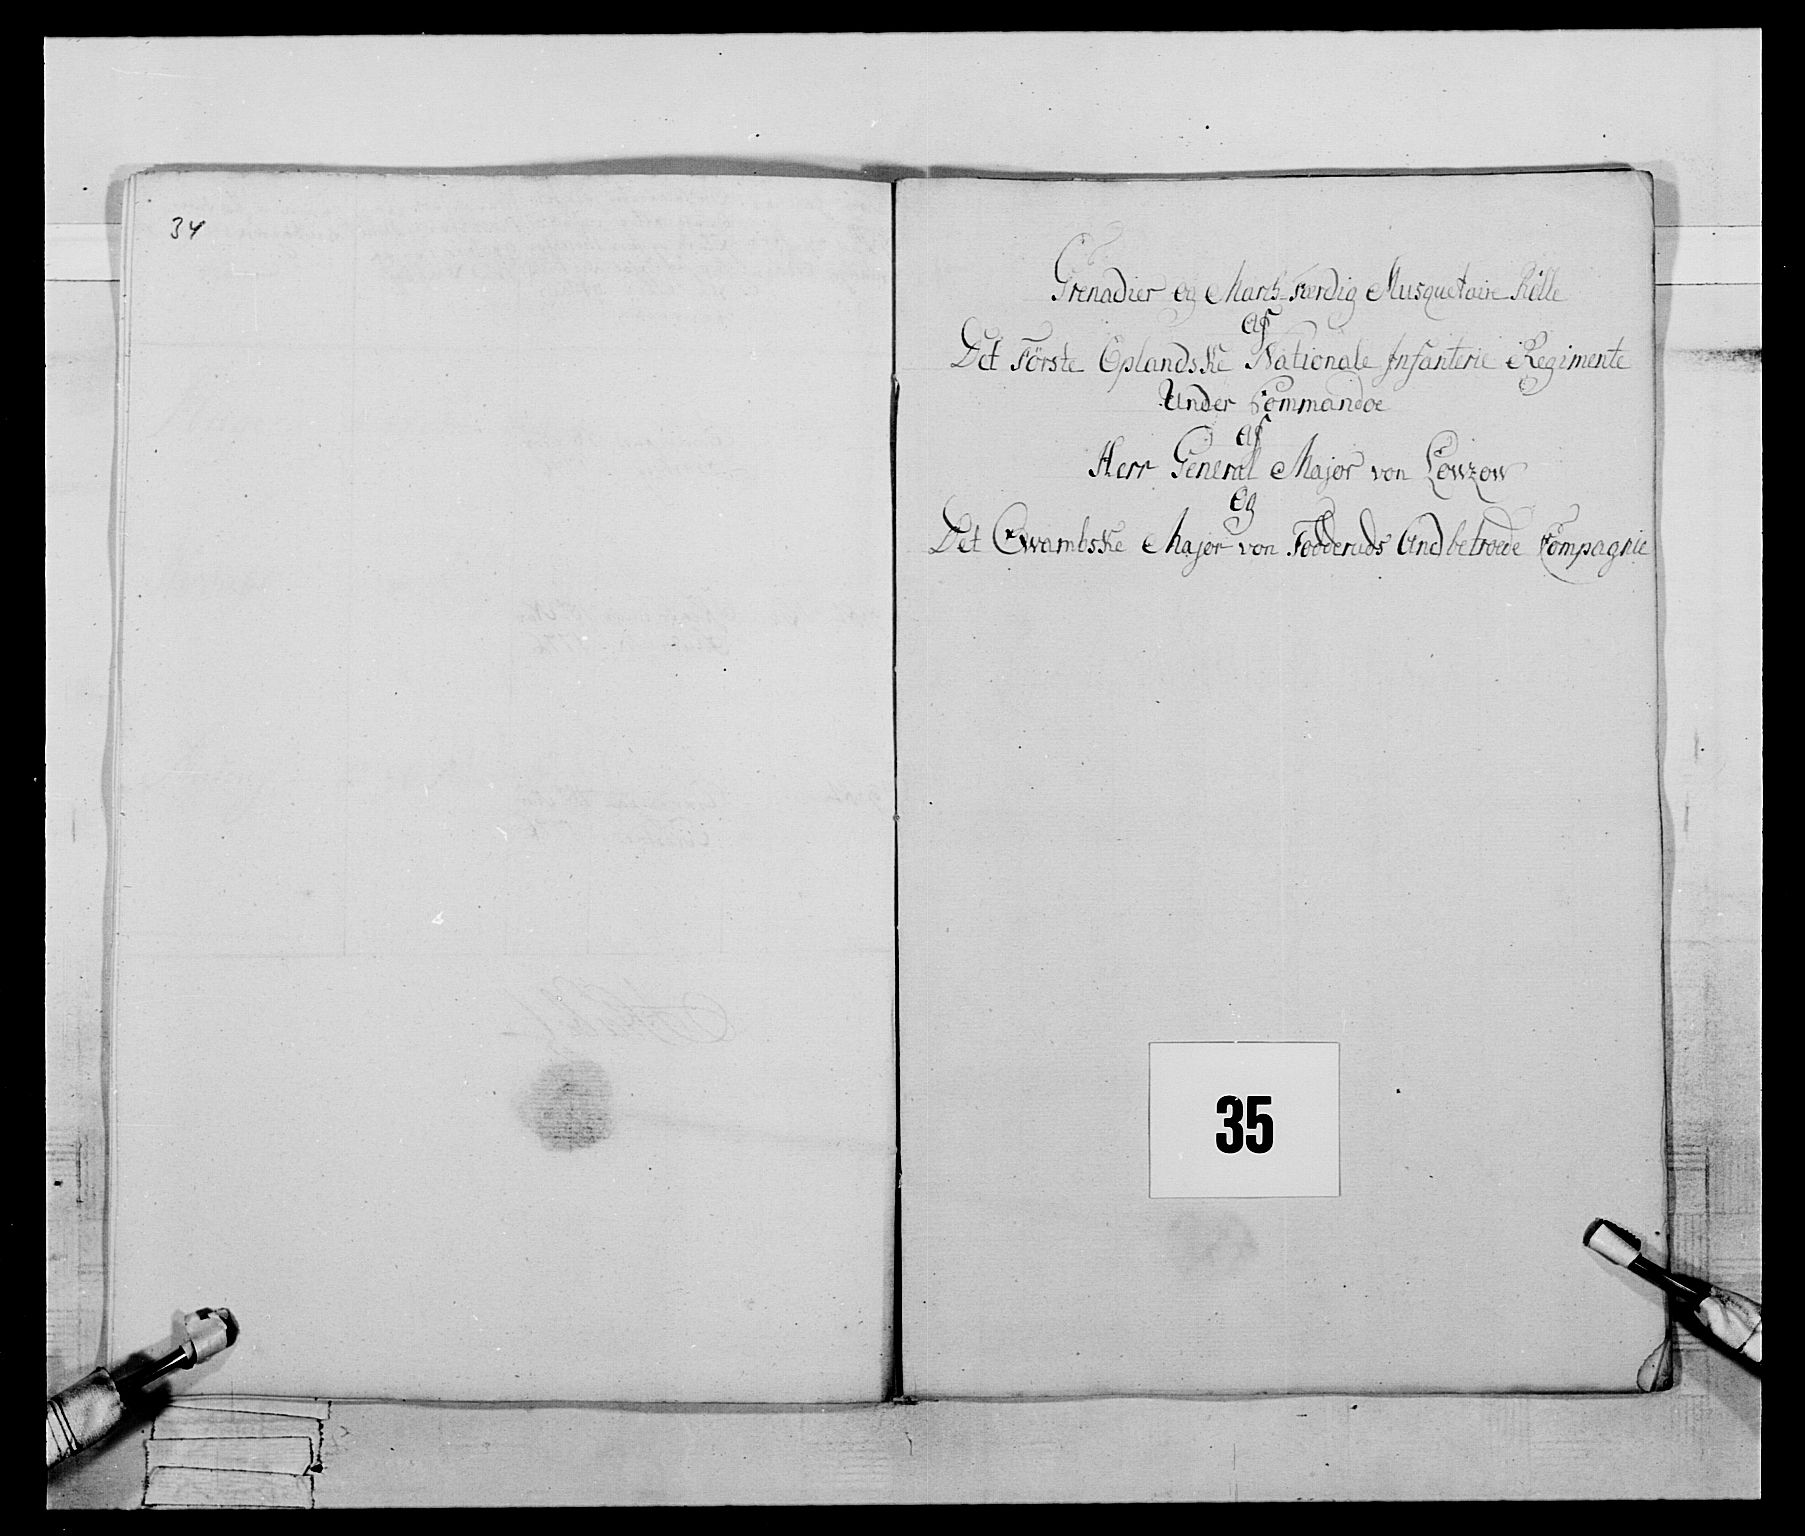 34
Grenadier og March-Færdig Musquetaire Rolle
af
Det Förste Oplandske Nationale Infanterie Regimente
Under Commandoe
af
Herr General Major von Lowzow
og
Det Cwambske Major von Todderuds Andbetroede Compagnie
35